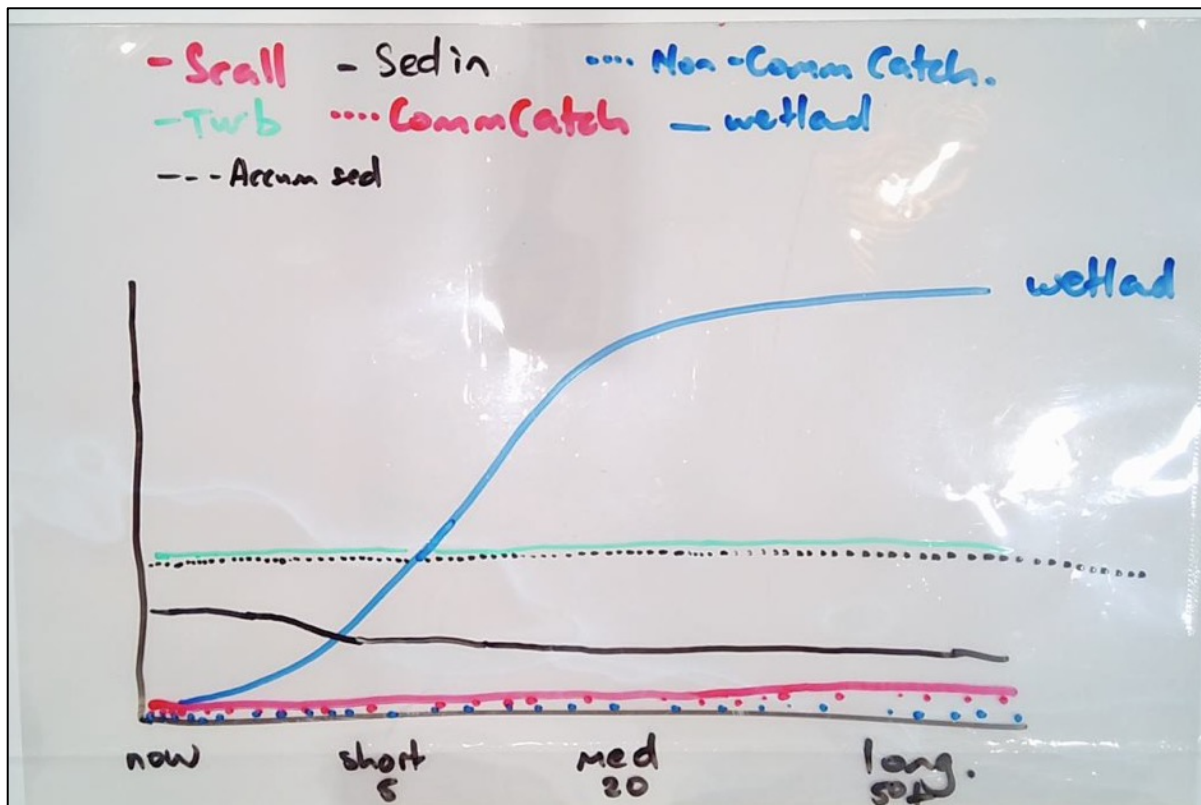 - Scall - Sed in .... Non-Comm Catch.
- Turb .... Comm Catch - wetlad
--- Accum sed
wetlad
now short med long.
5 20 50+